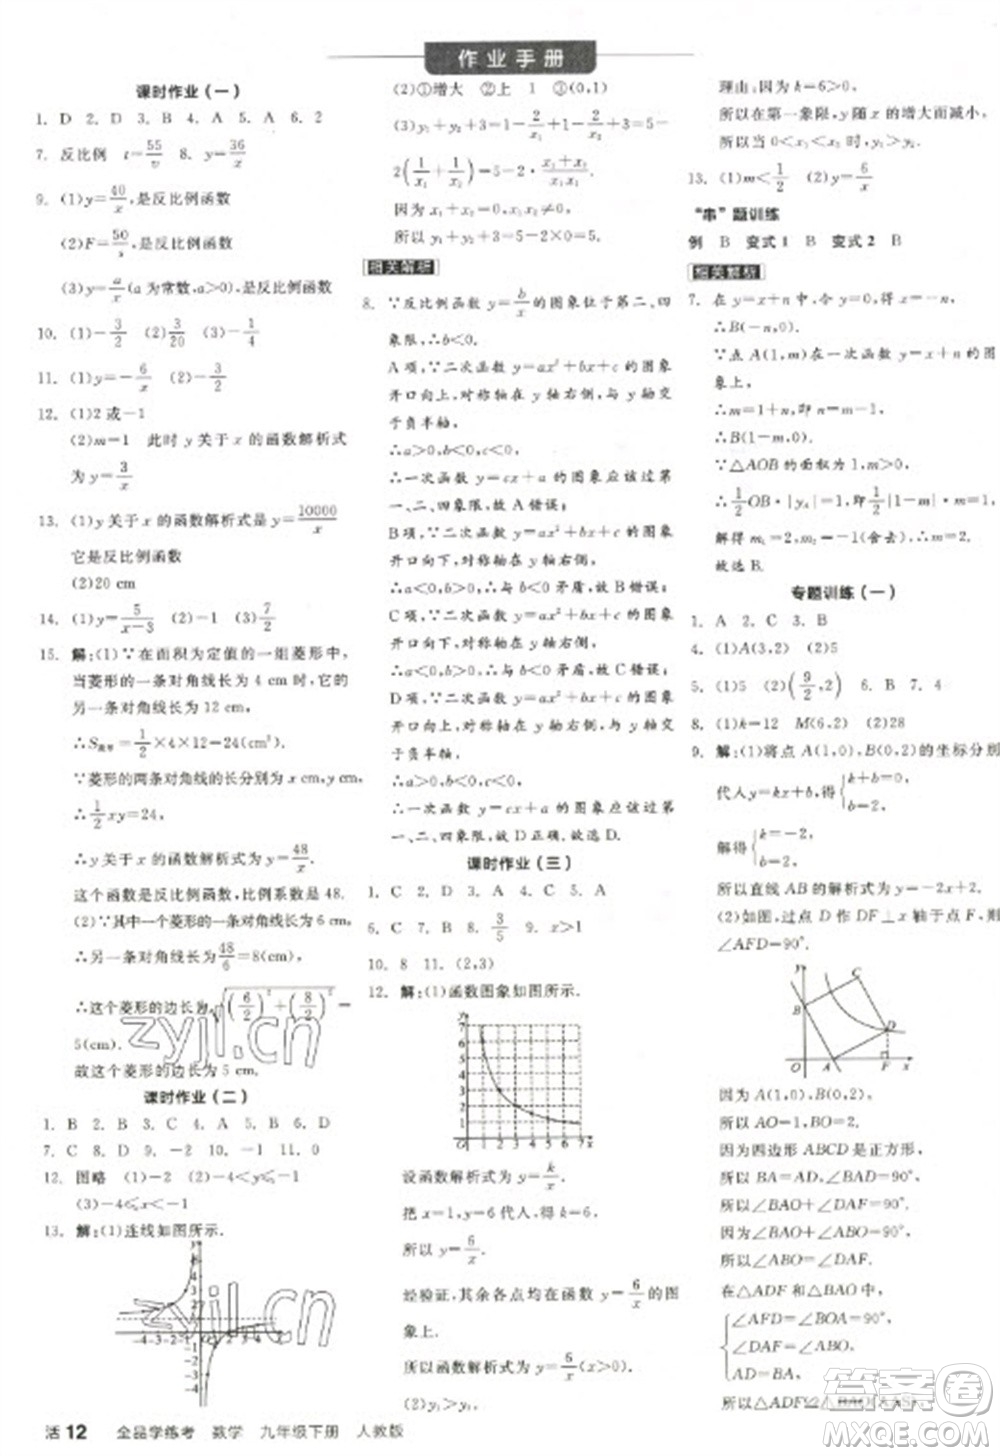 作业手册
课时作业(一)
1. D 2. D 3. B 4. A 5. A 6. 2
7. 反比例 t=55/v 8. y=36/x
9. (1)y=40/x,是反比例函数
(2)F=50/s,是反比例函数
(3)y=a/x(a为常数,a>0),是反比例函数
10. (1)-3/2 (2)3/20 (3)-1/4
11. (1)y=-6/x (2)-3/2
12. (1)2或-1
(2)m=1 此时y关于x的函数解析式
为y=3/x
13. (1)y关于x的函数解析式是y=10000/x
它是反比例函数
(2)20 cm
14. (1)y=5/(x-3) (2)-1/2 (3)7/2
15. 解:(1)∵在面积为定值的一组菱形中,
当菱形的一条对角线长为4 cm时,它的
另一条对角线长为12 cm,
∴S菱形=1/2×4×12=24(cm²).
∵菱形的两条对角线的长分别为x cm,y cm,
∴1/2xy=24,
∴y关于x的函数解析式为y=48/x.
这个函数是反比例函数,比例系数是48.
(2)∵其中一个菱形的一条对角线长为6 cm,
∴另一条对角线长为48/6=8(cm),
∴这个菱形的边长为√((6/2)²+(8/2)²)=
5(cm).
故这个菱形的边长为5 cm.
课时作业(二)
1. B 2. B 3. C 4. C 5. A 6. D
7. C 8. D 9. -2 10. -1 11. 0
12. 图略 (1)-2 (2)-4<y≤-1
(3)-4≤x<-1
13. 解:(1)连线如图所示.
(2)①增大 ②上 1 ③(0,1)
(3)y₁+y₂+3=1-2/x₁+1-2/x₂+3=5-
2(1/x₁+1/x₂)=5-2·(x₁+x₂)/(x₁x₂).
因为x₁+x₂=0,x₁x₂≠0,
所以y₁+y₂+3=5-2×0=5.
相关解析
8. ∵反比例函数y=b/x的图象位于第二、四
象限,∴b<0.
A项,∵二次函数y=ax²+bx+c的图象
开口向上,对称轴在y轴右侧,与y轴交
于负半轴,
∴a>0,b<0,c<0,
∴一次函数y=cx+a的图象应该过第
一、二、四象限,故A错误;
B项,∵二次函数y=ax²+bx+c的图象
开口向下,对称轴在y轴右侧,
∴a<0,b>0,与b<0矛盾,故B错误;
C项,∵二次函数y=ax²+bx+c的图象
开口向下,对称轴在y轴右侧,
∴a<0,b>0,与b<0矛盾,故C错误;
D项,∵二次函数y=ax²+bx+c的图象
开口向上,对称轴在y轴右侧,与y轴交
于负半轴,
∴a>0,b<0,c<0,
∴一次函数y=cx+a的图象应该过第
一、二、四象限,故D正确.故选D.
课时作业(三)
1. C 2. D 3. A 4. C 5. A
6. C 7. B 8. 3/5 9. x>1
10. 8 11. (2,3)
12. 解:(1)函数图象如图所示.
设函数解析式为y=k/x,
把x=1,y=6代入,得k=6,
所以y=6/x.
经验证,其余各点均在函数y=6/x的图
象上.
所以函数解析式为y=6/x(x>0).
(2)y₁>y₂
理由:因为k=6>0,
所以在第一象限,y随x的增大而减小,
所以当0<x₁<x₂时,y₁>y₂.
13. (1)m<1/2 (2)y=6/x
“串”题训练
例 B 变式1 B 变式2 B
相关解析
7. 在y=x+n中,当y=0时,x=-n,
∴B(-n,0).
∵点A(1,m)在一次函数y=x+n的图
象上,
∴m=1+n,即n=m-1,
∴B(1-m,0).
∵△AOB的面积为1,m>0,
∴1/2OB·|yA|=1,即1/2|1-m|·m=1,
解得m₁=2,m₂=-1(舍去),∴m=2.
故选B.
专题训练(一)
1. A 2. C 3. B
4. (1)A(3,2) (2)5
5. (1)5 (2)(9/2,2) 6. B 7. 4
8. (1)k=12 M(6,2) (2)28
9. 解:(1)将点A(1,0),B(0,2)的坐标分别
代入y=kx+b,得{k+b=0, b=2.
解得{k=-2, b=2.
所以直线AB的解析式为y=-2x+2.
(2)如图,过点D作DF⊥x轴于点F,则
∠AFD=90°.
因为A(1,0),B(0,2),
所以AO=1,BO=2.
因为四边形ABCD是正方形,
所以BA=AD,∠BAD=90°,
所以∠BAO+∠DAF=90°.
因为∠BAO+∠ABO=90°,
所以∠ABO=∠DAF.
在△ADF和△BAO中,
{∠AFD=∠BOA=90°,
∠DAF=∠ABO,
AD=BA,
所以△ADF≌△BAO,
活12 全品学练考 数学 九年级下册 人教版
zyjl.cn
zyjl.cn
答案卷